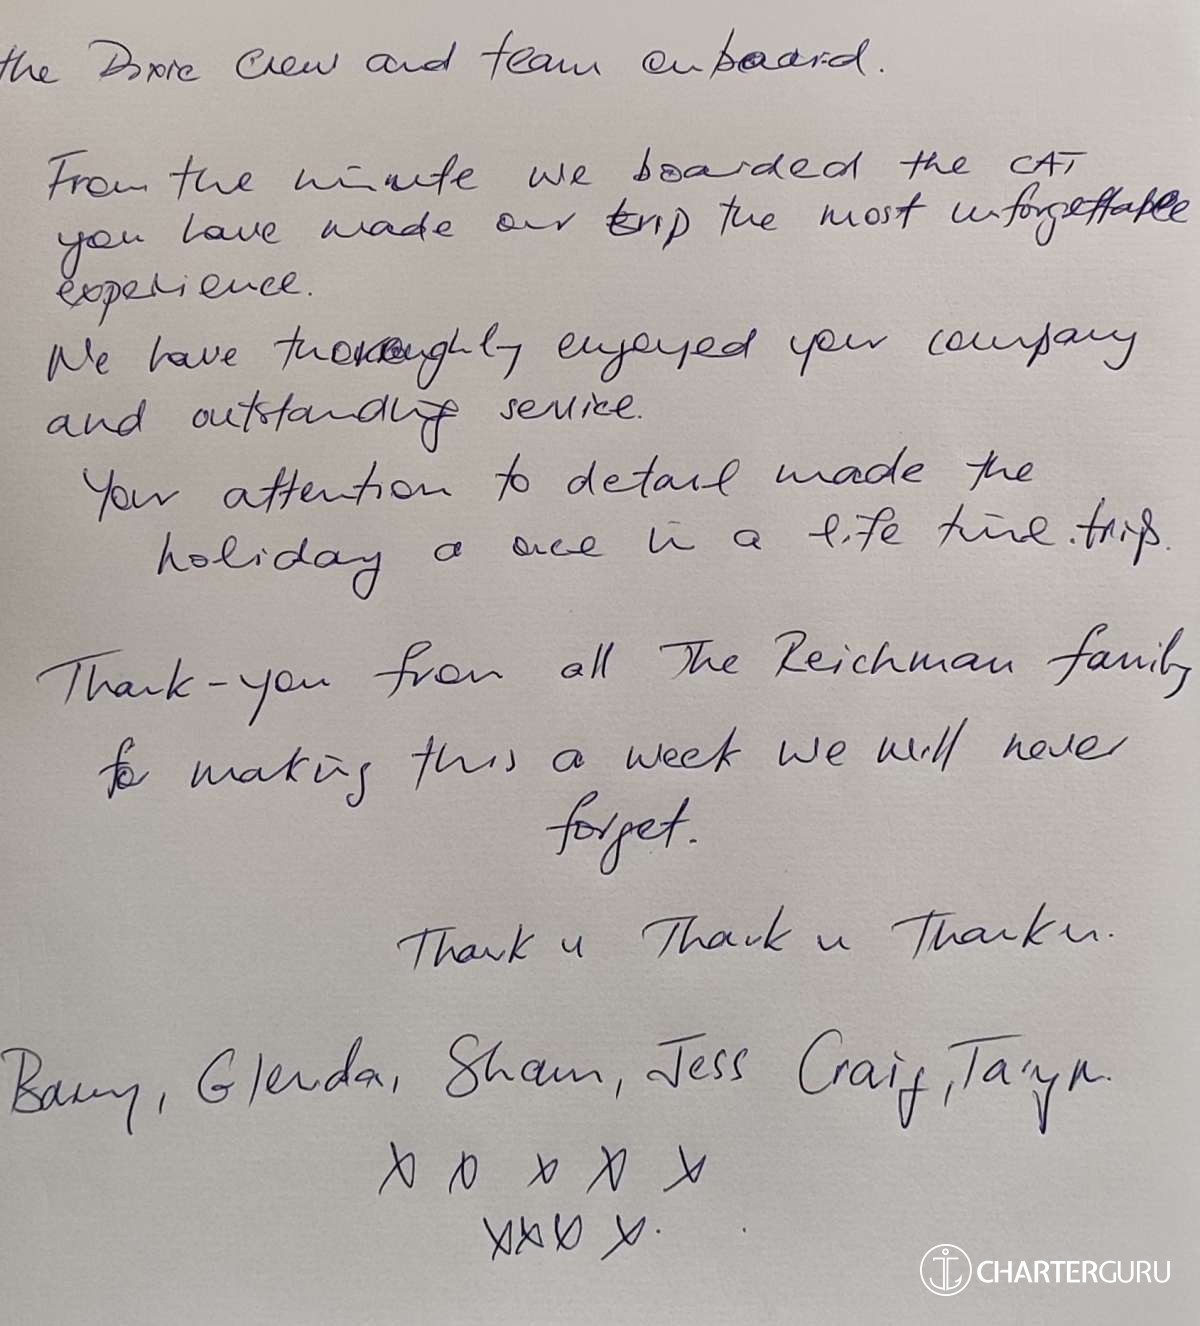 the Dixie Crew and team onboard.
From the minute we boarded the CAT
you have made our trip the most unforgettable
experience.
We have thoroughly enjoyed your company
and outstanding service.
Your attention to detail made the
holiday a once in a life time trip.
Thank-you from all The Reichman family
for making this a week we will never
forget.
Thank u Thank u Thank u.
Barry, Glenda, Shaun, Jess Craig, Taryn.
x x x x x
xxx x.
CHARTERGURU